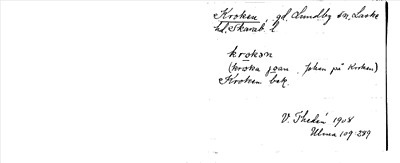 Kroken, gd. Lundby sn. Laske
hd. Skarab. l
krokən
(kroka jəan Johan på Kroken)
Kroken bek.
V. Thedén 1908
Ulma 109:289